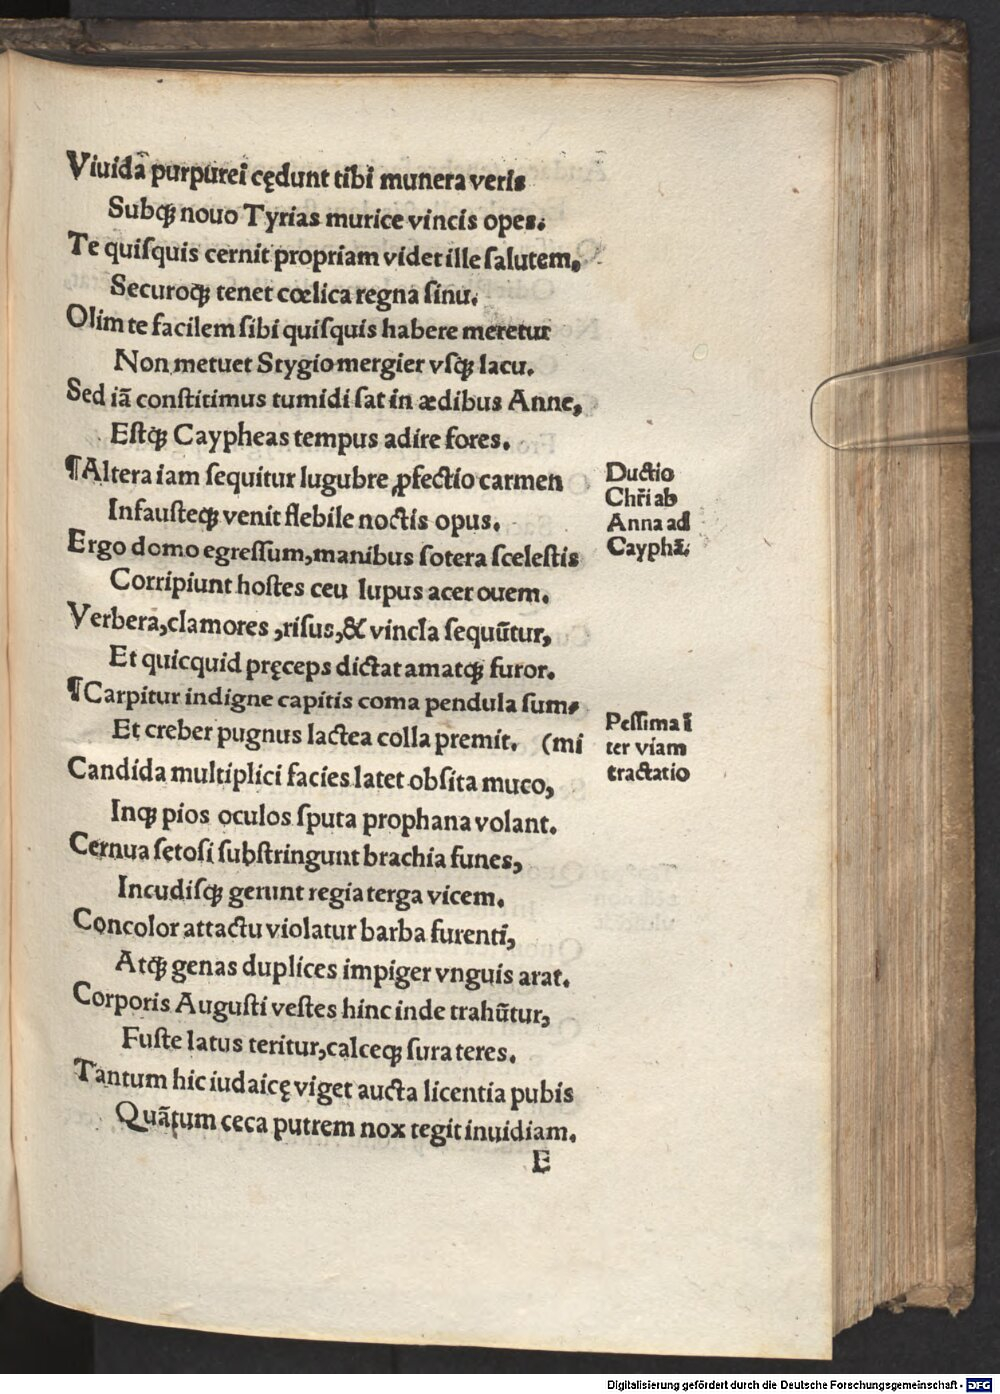 Viuida purpurei cędunt tibi munera veris
Subqꝫ nouo Tyrias murice vincis opes.
Te quiſquis cernit propriam videt ille ſalutem,
Securoqꝫ tenet cœlica regna ſinu.
Olim te facilem ſibi quiſquis habere meretur
Non metuet Stygio mergier vſqꝫ lacu.
Sed iā conſtitimus tumidi ſat in ædibus Anne,
Eſtqꝫ Caypheas tempus adire fores.
¶Altera iam ſequitur lugubre ꝓfectio carmen
Infauſteqꝫ venit flebile noctis opus.
Ergo domo egreſſum, manibus ſotera ſceleſtis
Corripiunt hoſtes ceu lupus acer ouem.
Verbera, clamores, riſus, & vincla ſequūtur,
Et quicquid pręceps dictat amatqꝫ furor.
¶Carpitur indigne capitis coma pendula ſum⸗
Et creber pugnus lactea colla premit. (mi
Candida multiplici facies latet obſita muco,
Inqꝫ pios oculos ſputa prophana volant.
Cernua ſetoſi ſubſtringunt brachia funes,
Incudiſqꝫ gerunt regia terga vicem.
Concolor attactu violatur barba furenti,
Atqꝫ genas duplices impiger vnguis arat.
Corporis Auguſti veſtes hinc inde trahūtur,
Fuſte latus teritur, calceqꝫ ſura teres.
Tantum hic iudaicę viget aucta licentia pubis
Quātum ceca putrem nox tegit inuidiam.
E
Ductio
Chr̄i ab
Anna ad
Cayphā.
Peſſima ī
ter viam
tractatio
Digitalisierung gefördert durch die Deutsche Forschungsgemeinschaft - DFG